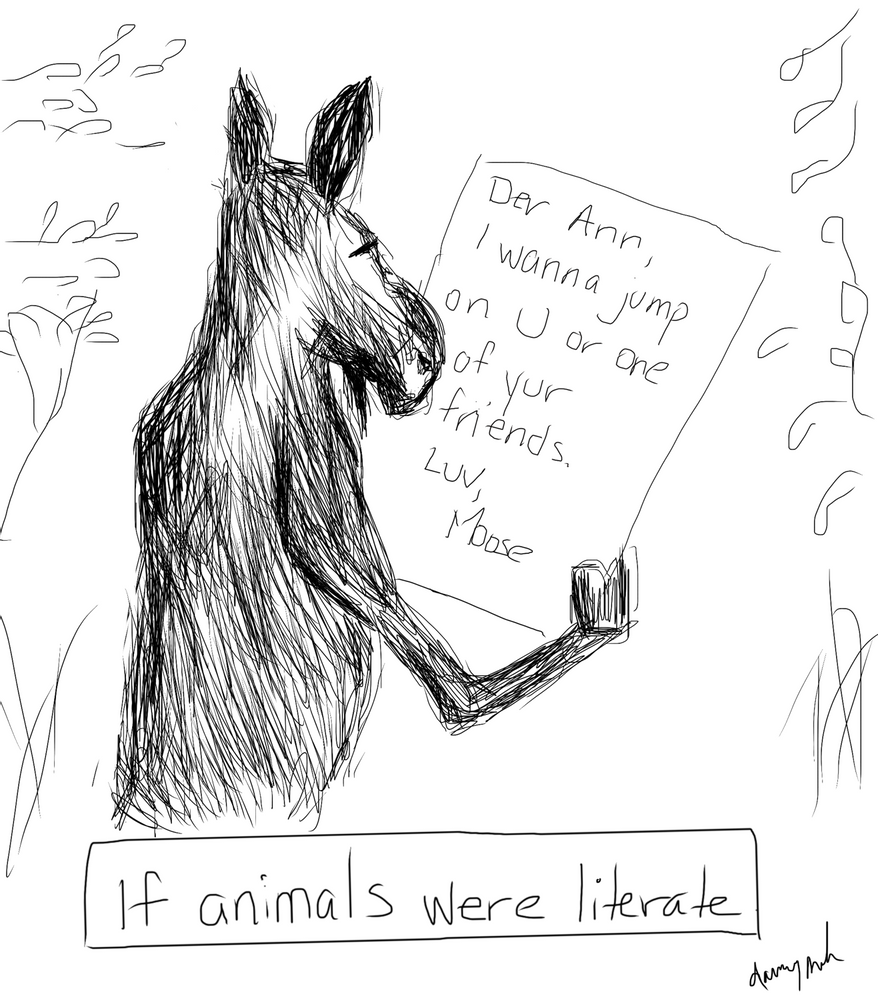 Der Ann,
I wanna jump
on U or one
of yur
friends.
Luv,
Moose
If animals were literate